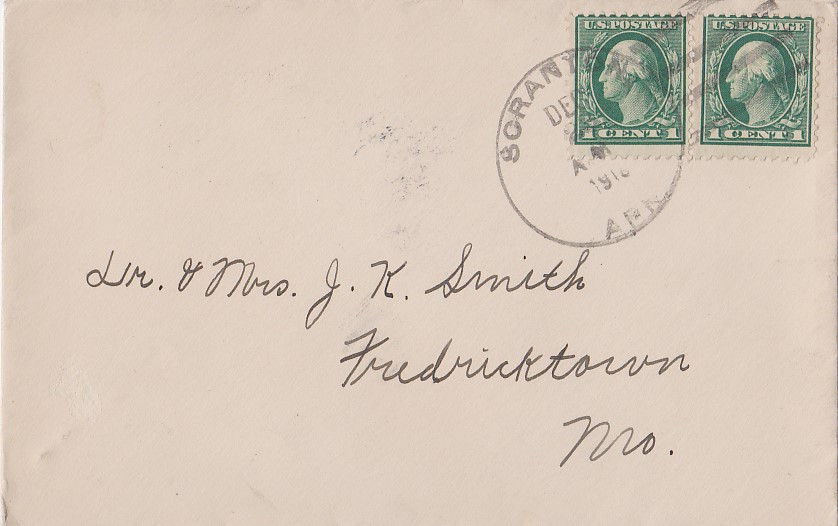 U.S. POSTAGE U.S. POSTAGE
1 CENT 1 1 CENT 1
A.M.
ARK
Dr. & Mrs. J. K. Smith
Fredricktown
Mo.